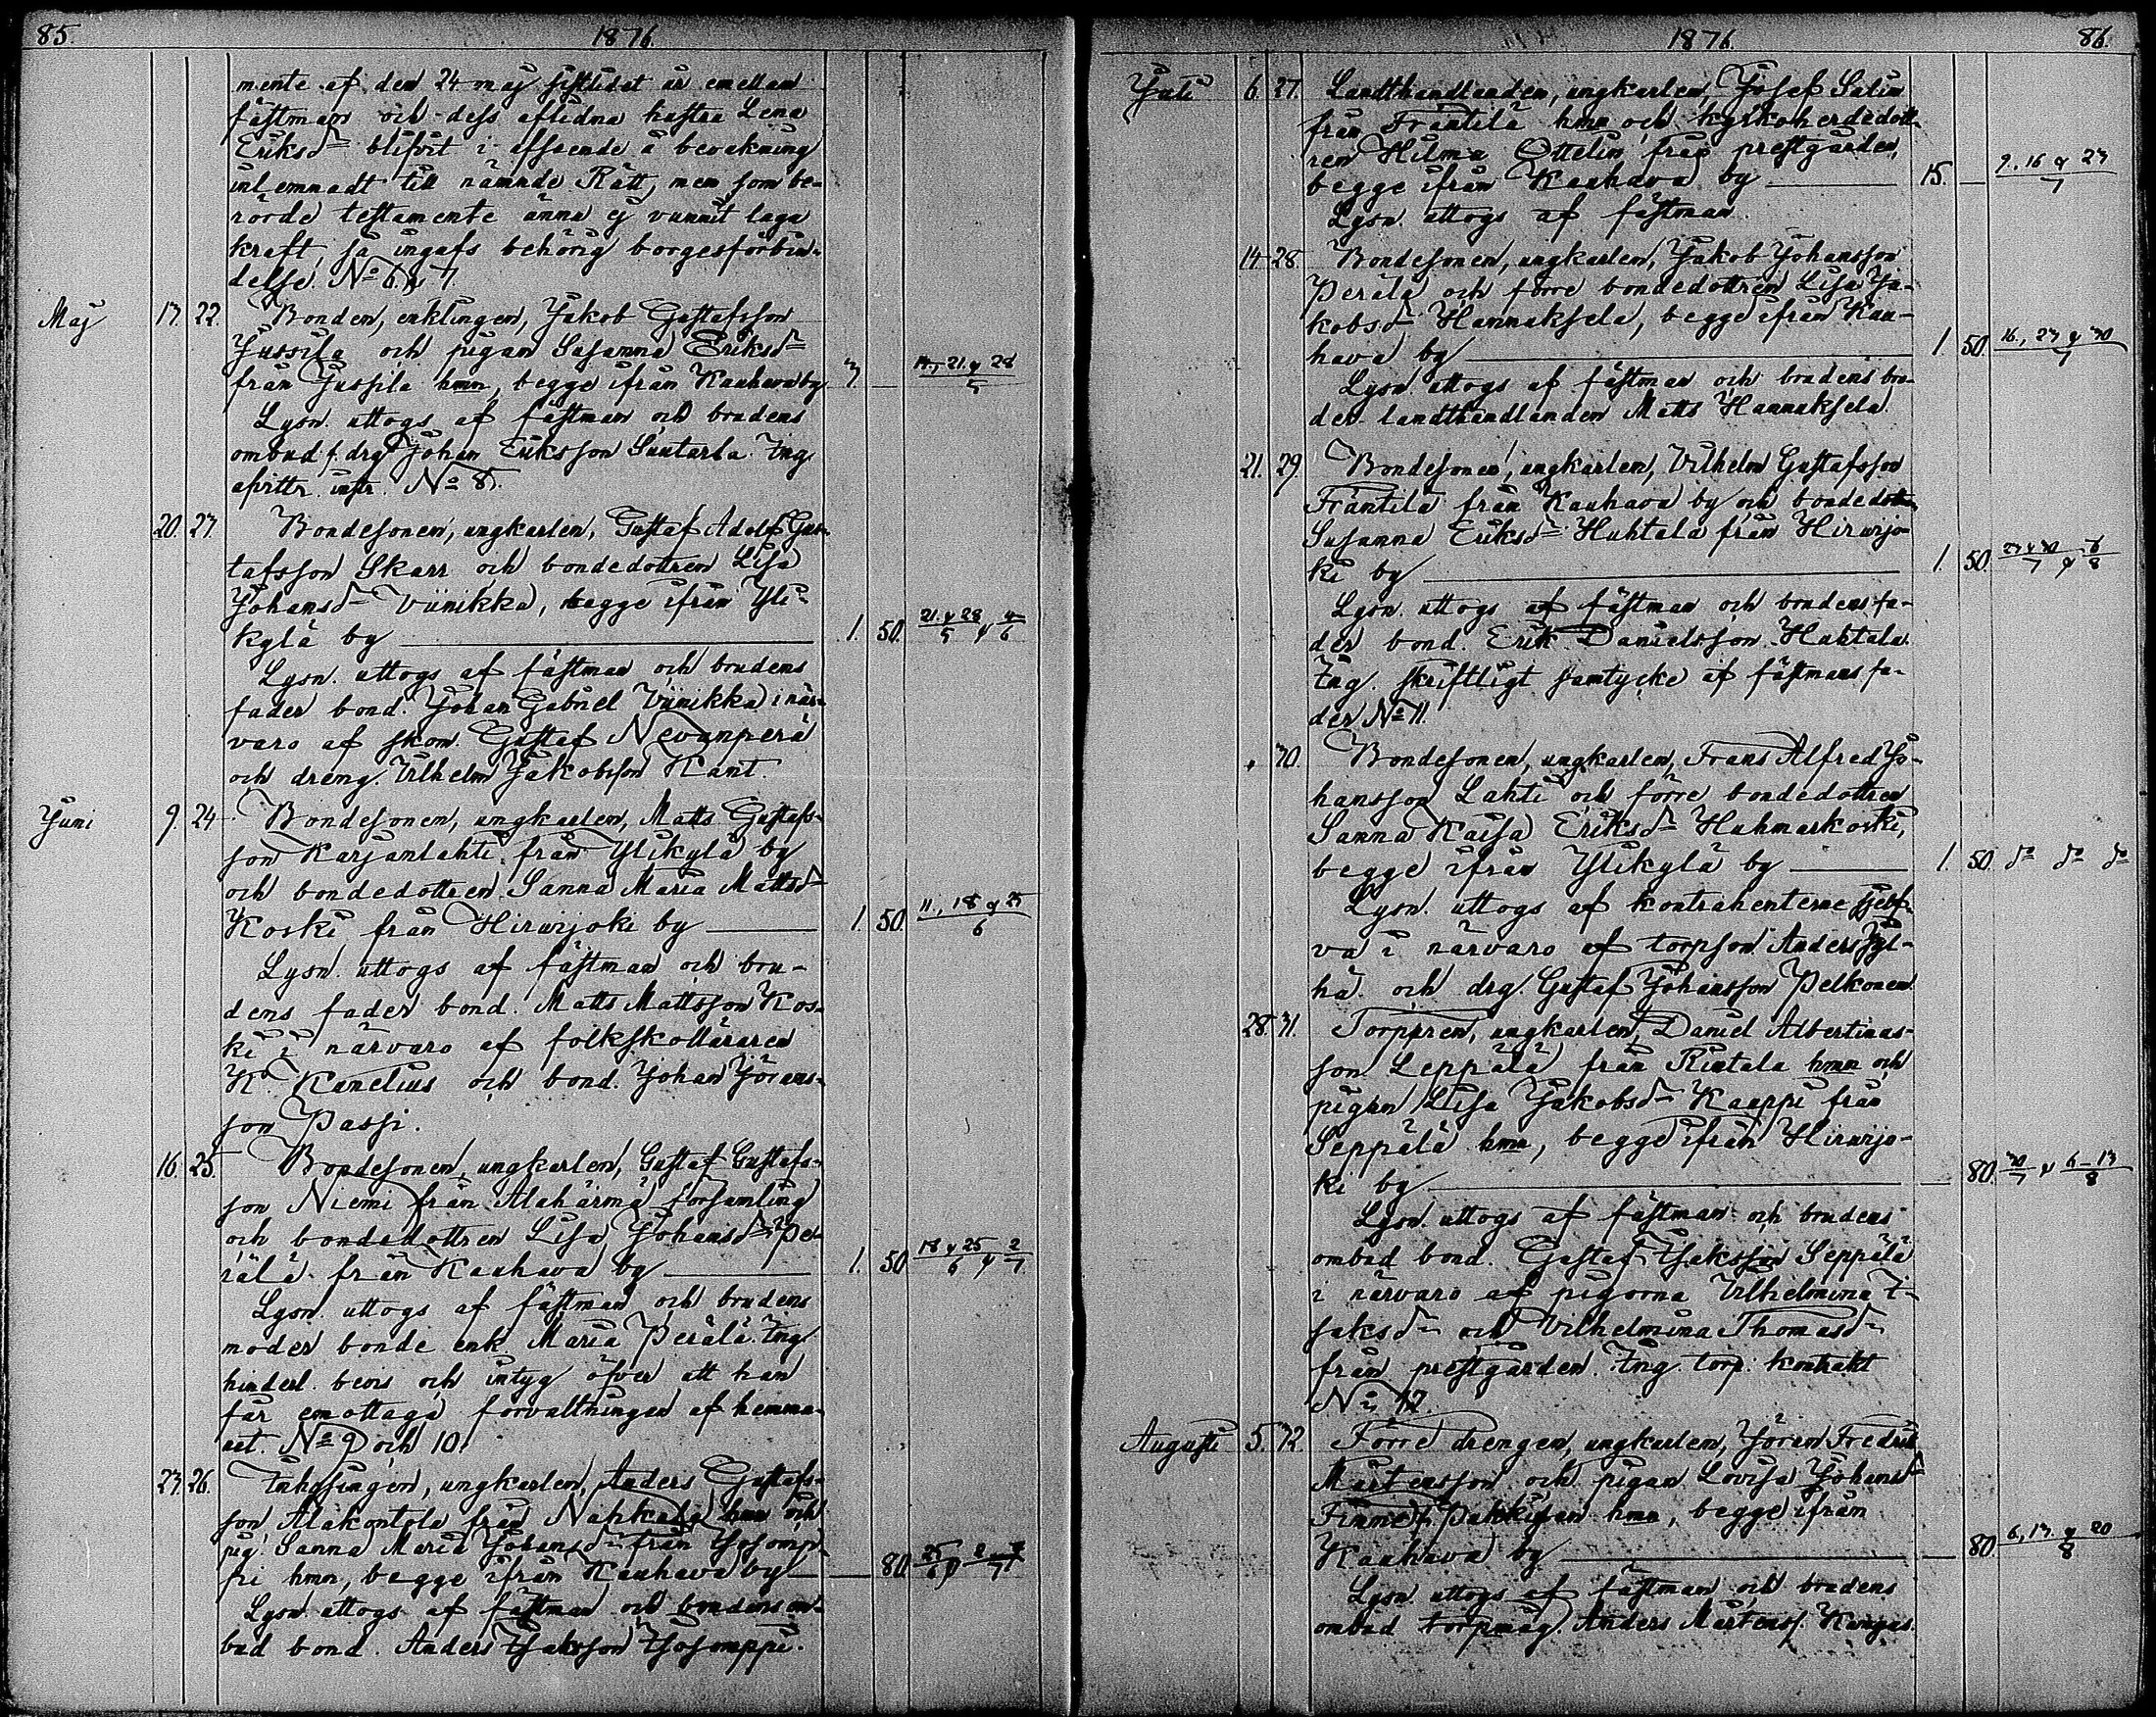 85. 1876.
mente af den 24 maj sistlidet år emellan
fästman och dess aflidna hustru Lena
Eriksdr blifvit i afseende å bevakning
inlemnadt till nämnde Rätt, men som be-
rörde testamente ännu ej vunnit laga
kraft, så ingafs behörig borgesförbin-
delse. No 6 & 7.
Maj 13. 22. Bonden, enklingen, Jakob Gustafsson
Jussila och pigan Susanna Eriksdr
från Jussila hmn, begge ifrån Kauhava by 3. — 14., 21. & 28/5
Lysn. uttogs af fästman och brudens
ombud f. drg Johan Eriksson Luutarla. Ing.
afvittr. instr. No 8.
20. 23. Bondesonen, ungkarlen, Gustaf Adolf Gus-
tafsson Skarr och bondedottren Lisa
Johansdr Viinikka, begge ifrån Yli-
kylä by — 1. 50. 21. & 28/5 & 4/6
Lysn. uttogs af fästman och brudens
fader bond. Johan Gabriel Viinikka i när-
varo af skom. Gustaf Nevanperä
och dreng. Vilhelm Jakobsson Kant.
Juni 9. 24. Bondesonen, ungkarlen, Matts Gustafs-
son Karjanlahti från Ylikylä by
och bondedottren Sanna Maria Mattsdr
Koski från Hirvijoki by — 1. 50. 11., 18 & 25/6
Lysn. uttogs af fästman och bru-
dens fader bond. Matts Mattsson Kos-
ki i närvaro af folkskolläraren
K. Kanelius och bond. Johan Jörans-
son Passi.
16. 25. Bondesonen, ungkarlen, Gustaf Gustafs-
son Niemi från Alahärmä församling
och bondedottren Lisa Johansdr Pe-
rälä från Kauhava by — 1. 50 18 & 25/6 & 2/7
Lysn. uttogs af fästman och brudens
moder bonde enk. Maria Perälä. Ing.
hinderl. bevis och intyg öfver att han
får emottaga förvaltningen af hemma-
net. No 9 och 10.
23. 26. Inhysingen, ungkarlen, Anders Gustafs-
son Alakontola från Nahkala hmn och
pig. Sanna Maria Johansdr från Isosomp-
pi hmn, begge ifrån Kauhava by — 80. 25/6 & 2 9/7
Lysn. uttogs af fästman och brudens om-
bud bond. Anders Isaksson Isosomppi.
1876. 86.
Juli 6. 27. Landthandlanden, ungkarlen, Josef Salin
från Frantilä hmn och kyrkoherdedott-
ren Hilma Ottelin från prestgården,
begge ifrån Kauhava by — 15. — 9., 16 & 23/7
Lysn. uttogs af fästman.
14. 28. Bondesonen, ungkarlen, Jakob Johansson
Perälä och förre bondedottren Lisa Ja-
kobsdr Hannuksela, begge ifrån Kau-
hava by — 1. 50. 16., 23 & 30/7
Lysn. uttogs af fästman och brudens bro-
der landthandlanden Matts Hannuksela.
21. 29. Bondesonen, ungkarlen, Vilhelm Gustafsson
Frantilä från Kauhava by och bondedottren
Susanna Eriksdr Huhtala från Hirvijo-
ki by — 1. 50. 23 & 30/7 & 6/8
Lysn. uttogs af fästman och brudens fa-
der bond. Erik Danielsson Huhtala.
Ing. skriftligt samtycke af fästmans fa-
der No 11.
„ 30. Bondesonen, ungkarlen, Frans Alfred Jo-
hansson Lahti och förre bondedottren
Sanna Kaisa Eriksdr Huhmarkoski,
begge ifrån Ylikylä by — 1. 50. do do do
Lysn. uttogs af kontrahenterne sjelf-
va i närvaro af torpson Anders Yl-
hä och drg. Gustaf Johansson Pelkonen.
28. 31. Torparen, ungkarlen, Daniel Albertinas-
son Leppälä från Rintala hmn och
pigan Lisa Jakobsdr Kaappi från
Seppälä hmn, begge ifrån Hirvijo-
ki by — 80. 30/7 & 6–13/8
Lysn. uttogs af fästman och brudens
ombud bond. Gustaf Isaksson Seppälä
i närvaro af pigorna Vilhelmina I-
saksdr och Vilhelmina Thomasdr
från prestgården. Ing. torp. kontrakt
No 12.
Augusti 5. 32. Förre drengen, ungkarlen, Jöran Fredrik
Mårtensson och pigan Lovisa Johansdr
Finne f. Pakkisen hmn, begge ifrån
Kauhava by — 80. 6, 13 & 20/8
Lysn. uttogs af fästman och brudens
ombud torpmåg. Anders Mårtenss. Kangas.